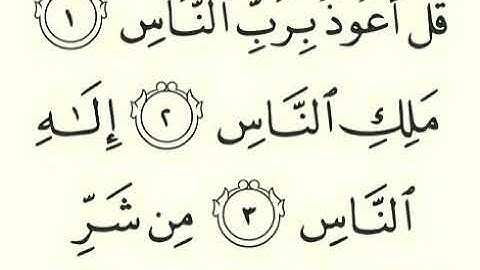 قُلْ أَعُوذُ بِرَبِّ ٱلنَّاسِ ١
مَلِكِ ٱلنَّاسِ ٢ إِلَـٰهِ
ٱلنَّاسِ ٣ مِن شَرِّ